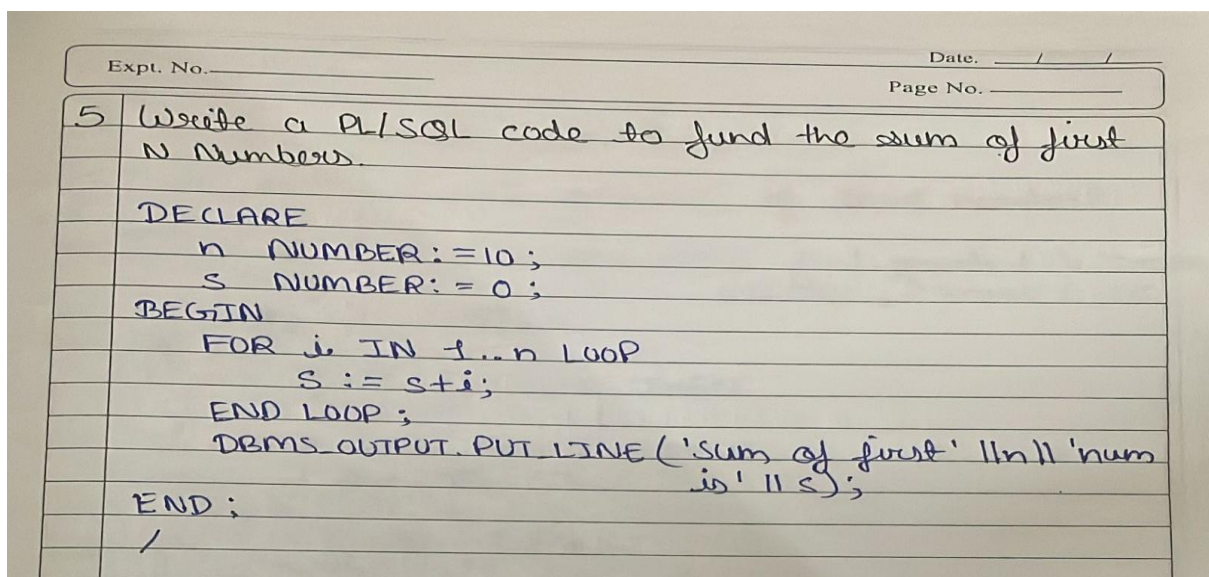 Expt. No.
Date. / /
Page No.
5 Write a PL/SQL code to fund the sum of first
N Numbers.
DECLARE
n NUMBER:=10;
s NUMBER:= 0;
BEGIN
FOR i IN 1..n LOOP
s := s+i;
END LOOP;
DBMS_OUTPUT.PUT_LINE('sum of first' ||n|| 'num
is' || s);
END;
/